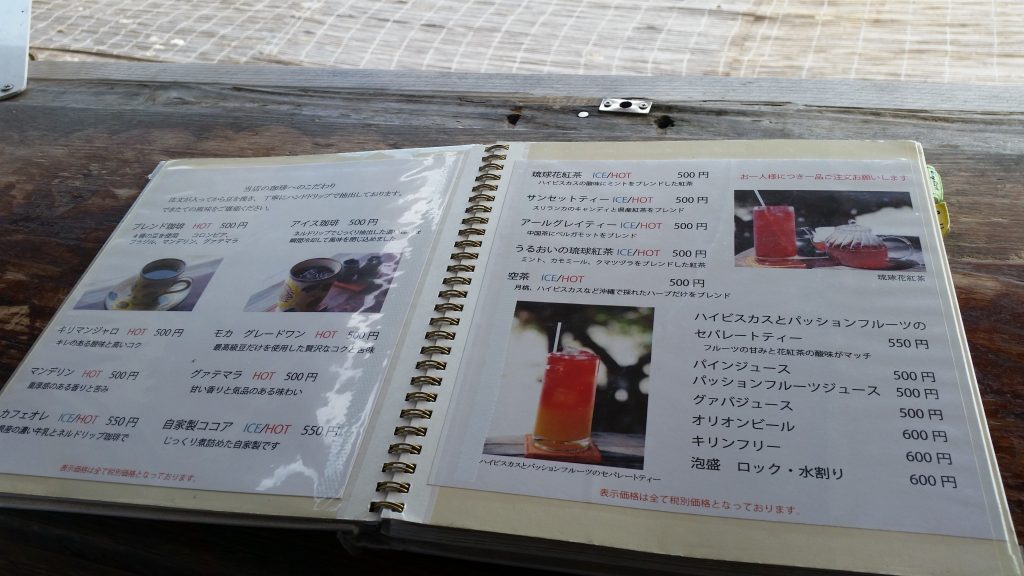 当店の珈琲へのこだわり
注文が入ってから豆を挽き、丁寧にハンドドリップで抽出しております。
できたての風味をご堪能ください。
ブレンド珈琲 HOT 500円
4種の豆を使用 コロンビア、
ブラジル、マンデリン、グァテマラ
アイス珈琲 ICE 500円
ネルドリップでじっくり抽出した濃い
瞬間冷却して風味を閉じ込めました
キリマンジャロ HOT 500円
キレのある酸味と高いコク
モカ グレードワン HOT 500円
最高級豆だけを使用した贅沢なコクと苦味
マンデリン HOT 500円
重厚感のある香りと苦み
グァテマラ HOT 500円
甘い香りと気品のある味わい
カフェオレ ICE/HOT 550円
県産の濃い牛乳とネルドリップ珈琲で
自家製ココア ICE/HOT 550円
じっくり煮詰めた自家製です
表示価格は全て税別価格となっております。
琉球花紅茶 ICE/HOT 500円
ハイビスカスの酸味にミントをブレンドした紅茶
サンセットティー ICE/HOT 500円
スリランカのキャンディと県産紅茶をブレンド
アールグレイティー ICE/HOT 500円
中国茶にベルガモットをブレンド
うるおいの琉球紅茶 ICE/HOT 500円
ミント、カモミール、クマツヅラをブレンドした紅茶
空茶 ICE/HOT 500円
月桃、ハイビスカスなど沖縄で採れたハーブだけをブレンド
お一人様につき一品ご注文お願いします
琉球花紅茶
ハイビスカスとパッションフルーツの
セパレートティー 550円
フルーツの甘みと花紅茶の酸味がマッチ
パインジュース 500円
パッションフルーツジュース 500円
グァバジュース 500円
オリオンビール 600円
キリンフリー 600円
泡盛 ロック・水割り 600円
ハイビスカスとパッションフルーツのセパレートティー
表示価格は全て税別価格となっております。